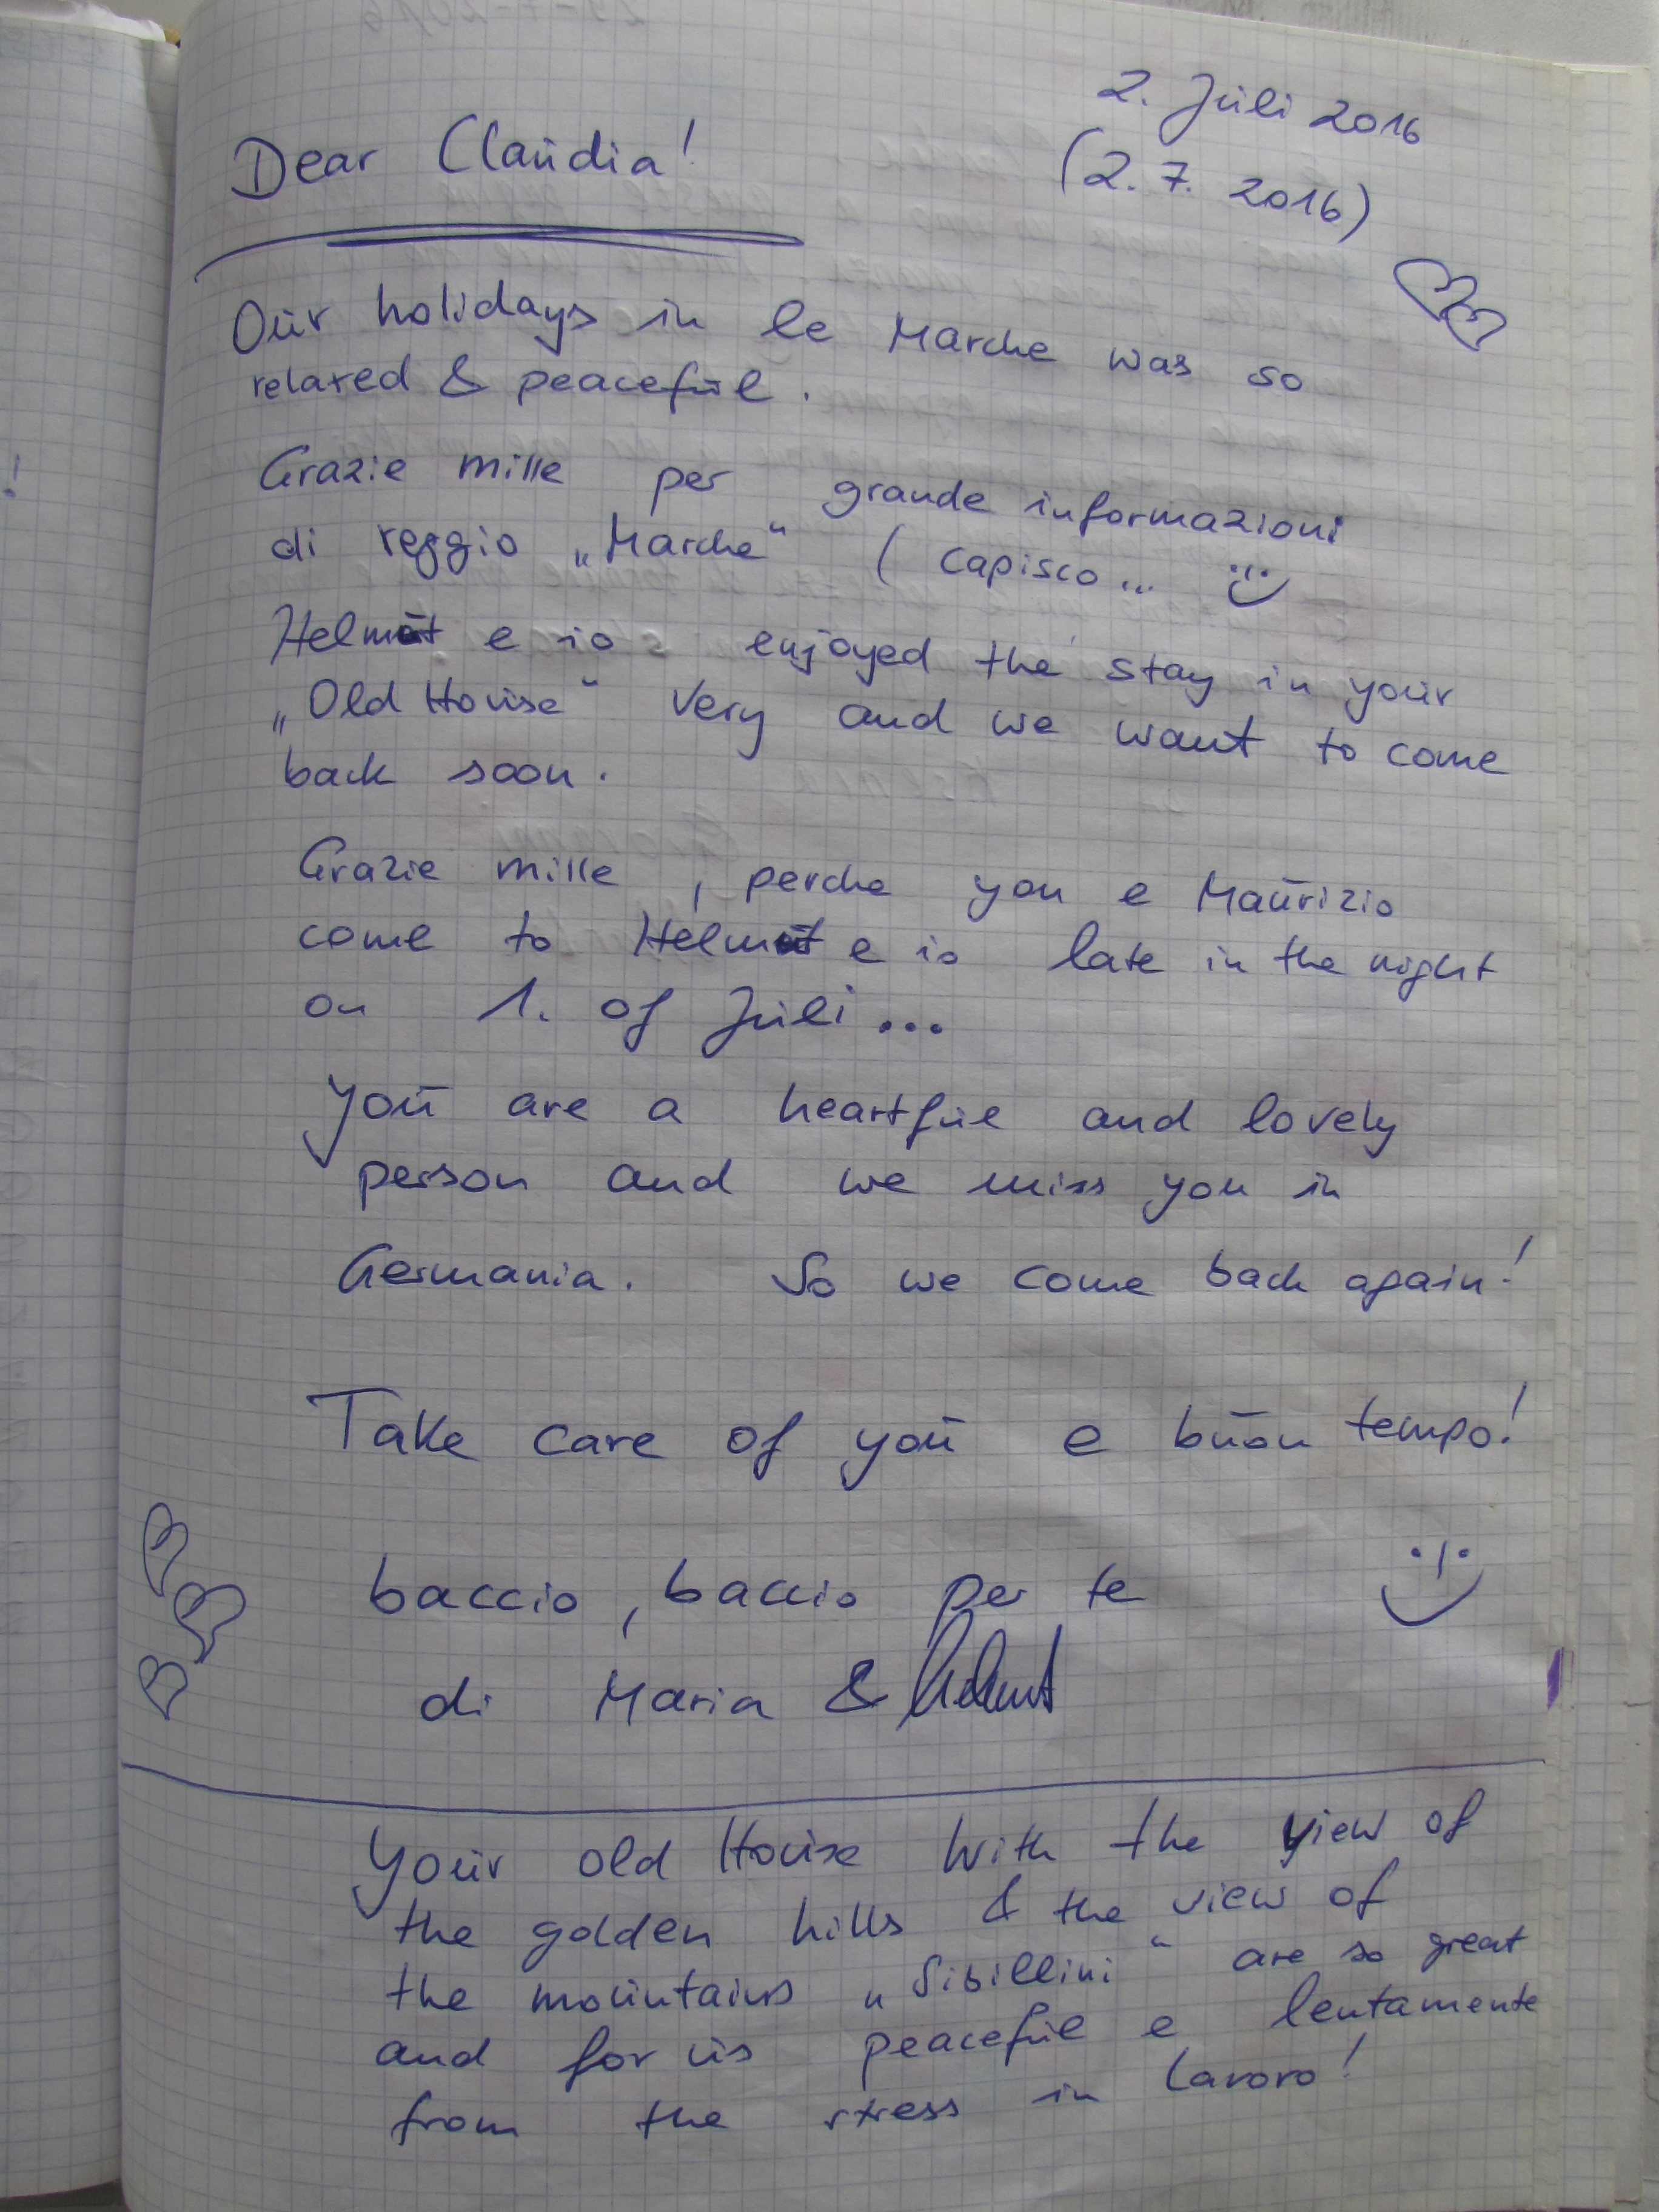 2. Juli 2016
(2. 7. 2016)
Dear Claudia!
Our holidays in le Marche was so
relaxed & peaceful.
Grazie mille per grande informazioni
di reggio „Marche“ ( capisco...
Helmut e io enjoyed the stay in your
„Old House“ very and we want to come
back soon.
Grazie mille , perche you e Maurizio
come to Helmut e io late in the night
on 1. of Juli ...
You are a heartful and lovely
person and we miss you in
Germania. So we come back again!
Take care of you e buon tempo!
baccio, baccio per te
di Maria & Helmut
Your old House with the view of
the golden hills & the view of
the mountains „Sibillini“ are so great
and for us peaceful e lentamente
from the stress in Lavoro!